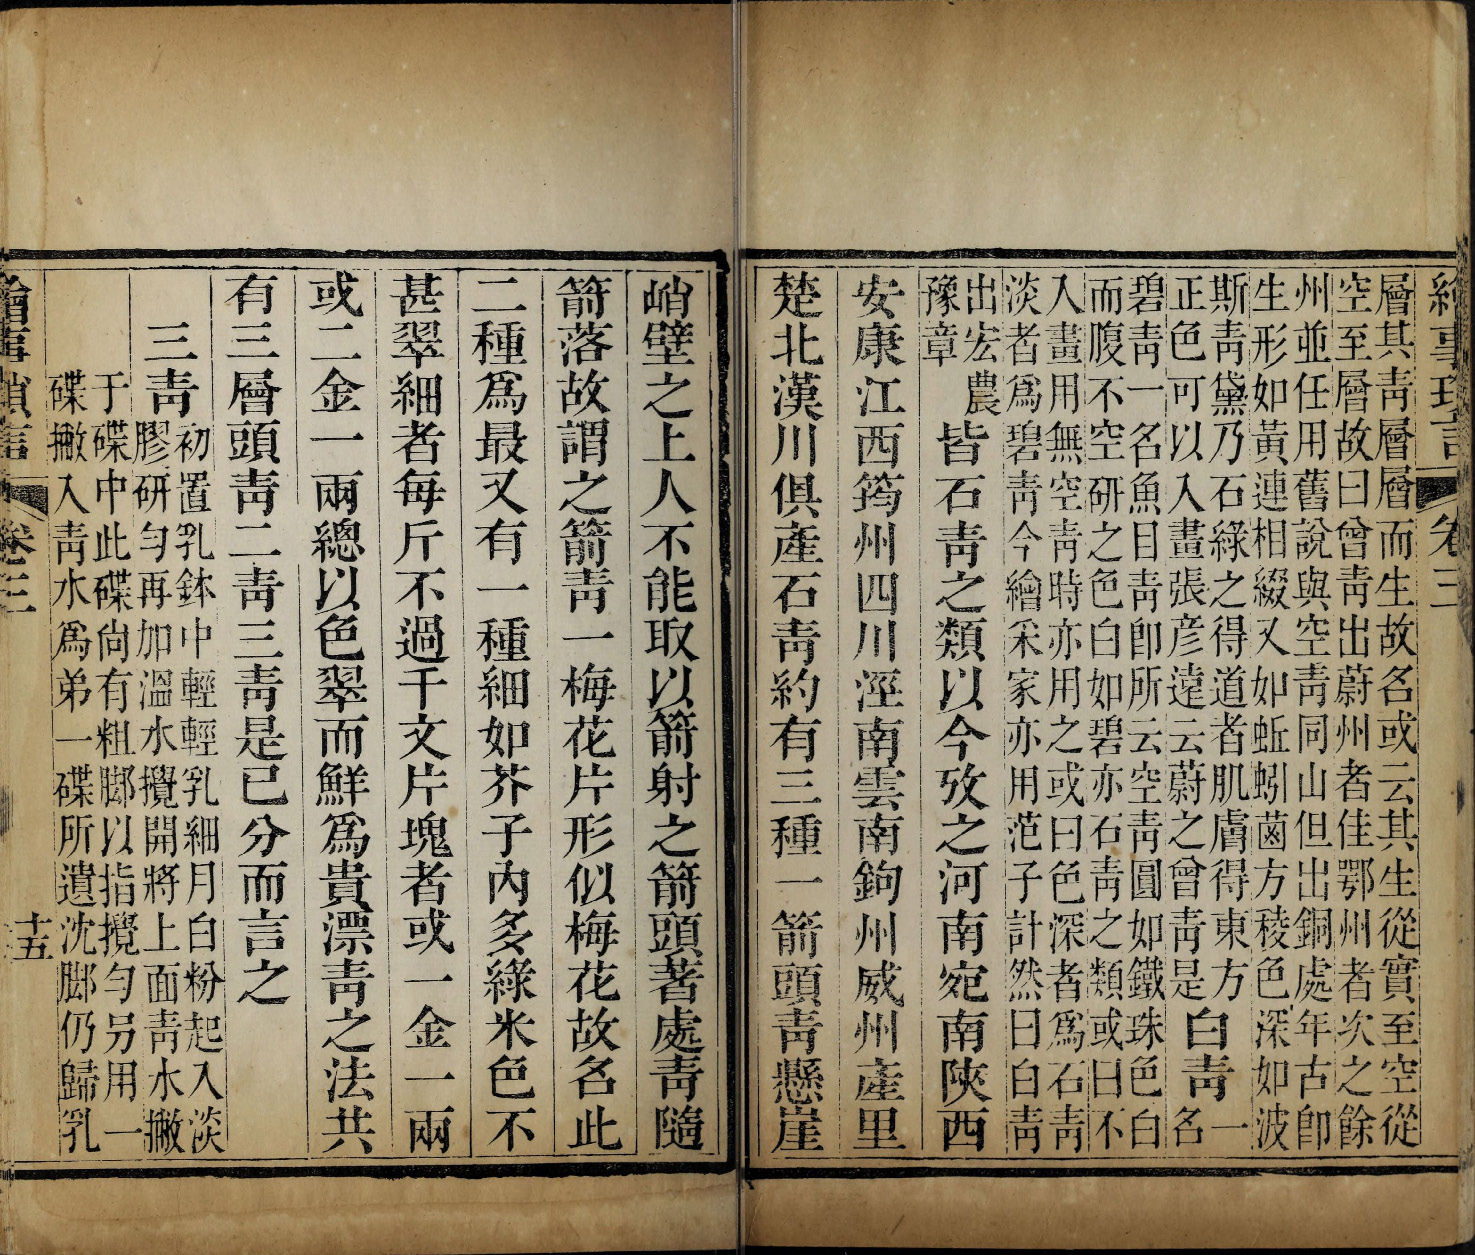 繪事瑣言 卷三
層其靑層層而生故名或云其生從實至空從
空至層故曰曾靑出蔚州者佳鄂州者次之餘
州並任用舊說與空靑同山但出銅處年古卽
生形如黃連相綴又如蚯蚓菌方稜色深如波
斯靑黛乃石綠之得道者肌膚得東方
正色可以入畫張彥遠云蔚之曾靑是
白靑
一
名
碧靑一名魚目靑卽所云空靑圓如鐵珠色白
而腹不空硏之色白如碧亦石靑之類或曰不
入畫用無空靑時亦用之或曰色深者爲石靑
淡者爲碧靑今繪采家亦用范子計然曰白靑
出宏農
豫章
皆石靑之類以今攷之河南宛南陝西
安康江西筠州四川涇南雲南鉤州威州產里
楚北漢川俱產石靑約有三種一箭頭靑懸崖
峭壁之上人不能取以箭射之箭頭著處靑隨
箭落故謂之箭靑一梅花片形似梅花故名此
二種爲最又有一種細如芥子內多綠米色不
甚翠細者每斤不過千文片塊者或一金一兩
或二金一兩總以色翠而鮮爲貴漂靑之法共
有三層頭靑二靑三靑是已分而言之
三靑
初置乳鉢中輕輕乳細月白粉起入淡
膠硏勻再加溫水攪開將上面靑水撇
于碟中此碟尙有粗脚以指攪勻另用一
碟撇入靑水爲弟一碟所遺沈脚仍歸乳
繪事瑣言 卷三 十五